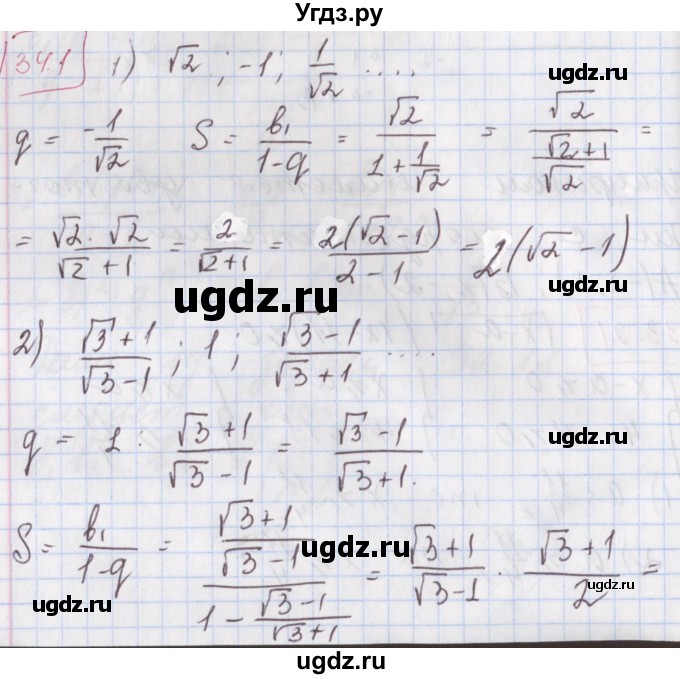 Угдз.ру
34.1 1) √2 ; -1 ; 1/√2 ....
ugdz.ru
q = -1/√2 S = b₁/(1-q) = √2/(1+1/√2) = √2/((√2+1)/√2) =
= (√2·√2)/(√2+1) = 2/(√2+1) = 2(√2-1)/(2-1) = 2(√2-1)
ugdz.ru
ugdz.ru
2) (√3+1)/(√3-1) ; 1 ; (√3-1)/(√3+1) ....
q = 1 : (√3+1)/(√3-1) = (√3-1)/(√3+1).
ugdz.ru
ugdz.ru
S = b₁/(1-q) = ((√3+1)/(√3-1))/(1-(√3-1)/(√3+1)) = (√3+1)/(√3-1) · (√3+1)/2 =
ugdz.ru
ugdz.ru